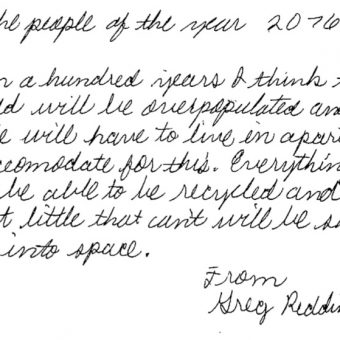 he people of the year 2076
n a hundred years I think t
ld will be overpopulated an
e will have to live in apar
ccomodate for this. Everythin
be able to be recycled and
t little that can't will be s
into space.
From
Greg Reddin